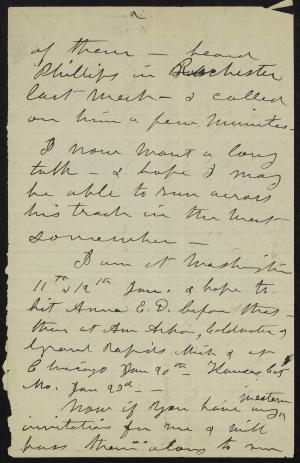 2
of them — heard
Phillips in Rochester
last week — & called
on him a few minutes —
I now want a long
talk — & hope I may
be able to run across
his track in the West
somewhere —
I am at Washington
11th & 12th Jan. & hope to
hit Anna E. D. before this —
then at Ann Arbor, Coldwater &
Grand Rapids, Mich & at
Chicago Jan 20th — Kansas City
Mo. Jan 23d —
Now if you have any western
invitations for me & will
pass them along to me